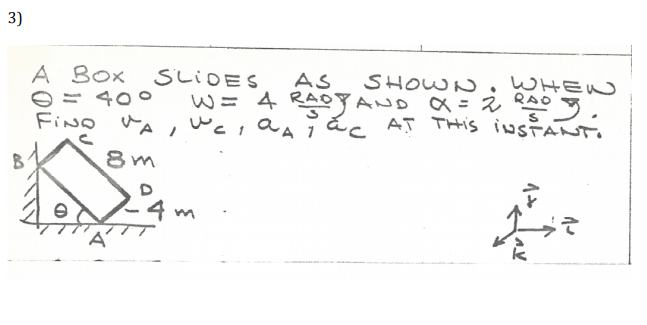 3)
A BOX SLIDES AS SHOWN. WHEN
θ = 40° W = 4 RAD/S AND α = 2 RAD/S.
FIND VA, VC, aA, aC AT THIS INSTANT.
C
B 8 m
D
θ 4 m
A
j
i
k